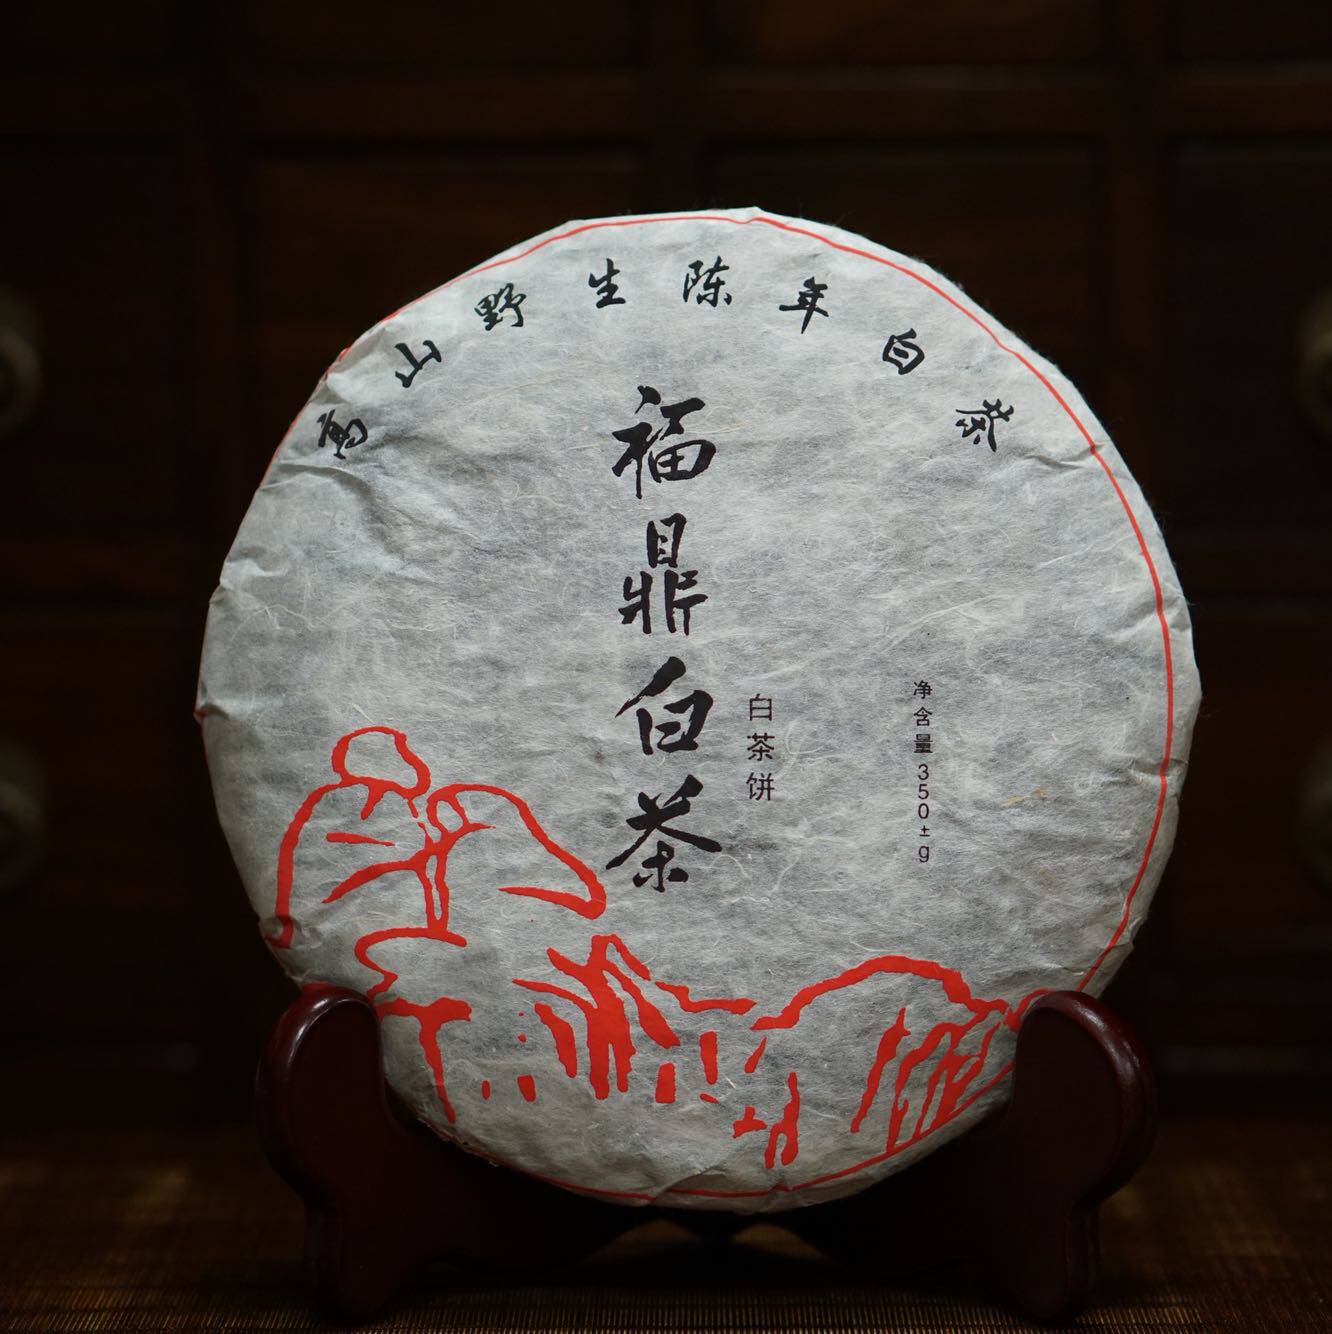 高山野生陈年白茶
福鼎白茶
白茶饼
净含量350±g